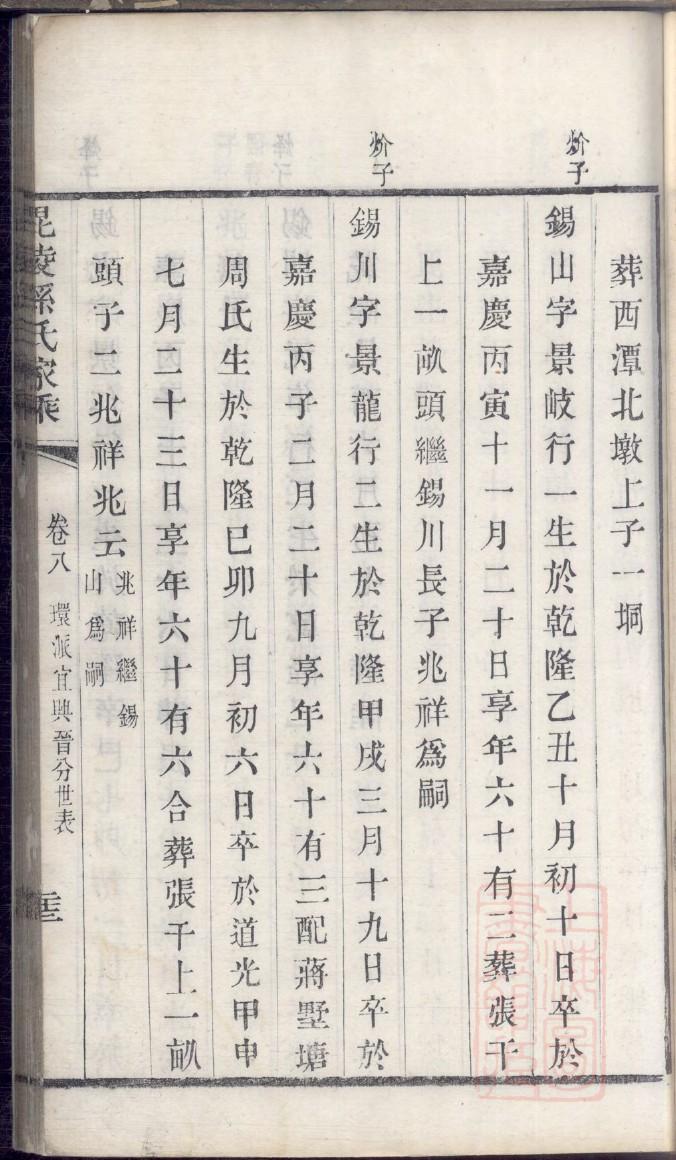 葬西潭北墩上子一垌
炌子
錫山字景岐行一生於乾隆乙丑十月初十日卒於
嘉慶丙寅十一月二十日享年六十有二葬張干
上一畝頭繼錫川長子兆祥爲嗣
炌子
錫川字景龍行二生於乾隆甲戌三月十九日卒於
嘉慶丙子二月二十日享年六十有三配蔣墅塘
周氏生於乾隆巳卯九月初六日卒於道光甲申
七月二十三日享年六十有六合葬張干上一畝
頭子二兆祥兆云
兆祥繼錫
山爲嗣
毘陵孫氏家乘
卷八
環派宜興晉分世表